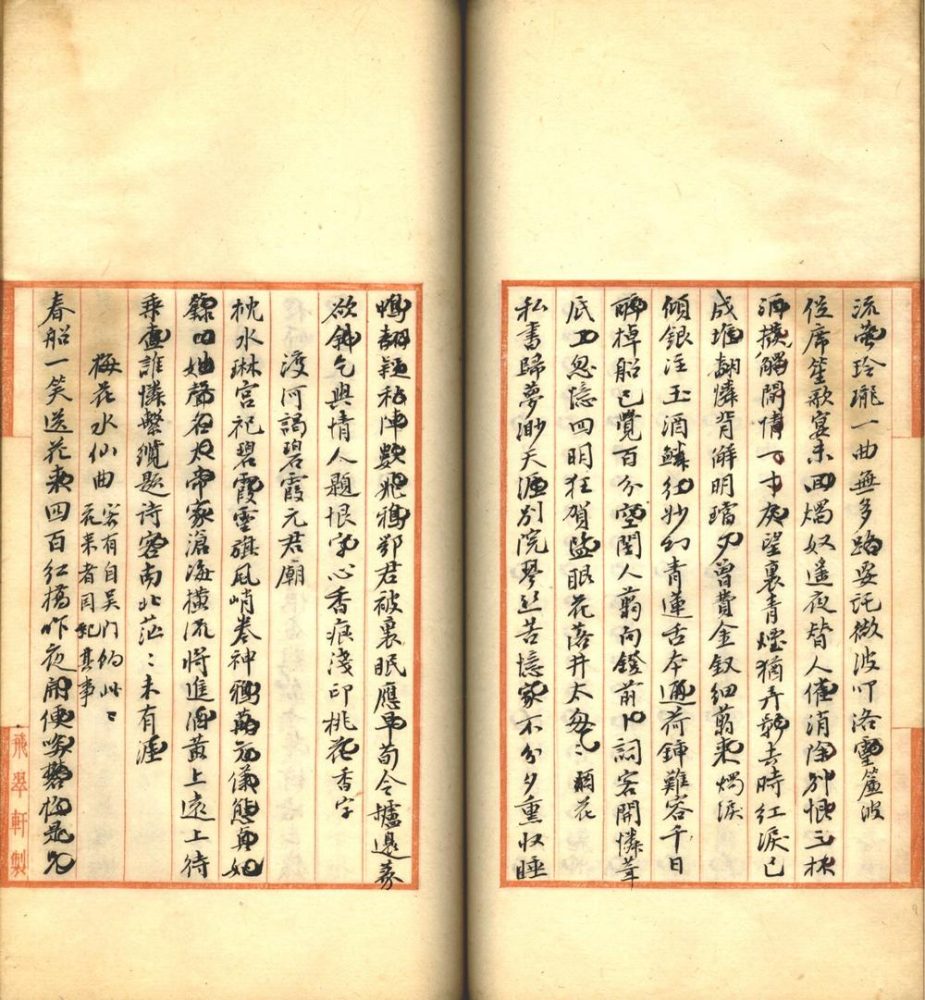 流 玲瓏一曲無多路妥託微波叩洛靈簾波
位席笙歌宴未回燭奴遥夜替人催消除別恨三杯
酒 觸閑情一寸灰望裏青煙猶弄轉去時紅淚已
成堆 翻憐背解明璫 曾費金釵細翦來燭淚
傾銀注玉酒鱗紅妙幻青蓮舌本通荷鍤難容千日
醉掉船已覺百分空閨人翦向鐙前 詞客開憐茸
底 忽憶四明狂賀監眼花落井太匆〻 花
私書歸夢渺天涯別院琴絲苦憶家不分夕熏收睡
鴨翻 私陣數 鴉鄂君被裏眠應早荀令爐邊
欲 乞與情人題恨字心香痕淺印桃花香字
渡河謁碧霞元君廟
枕水琳宮祀碧霞靈旗風峭卷神鴉 元儀態真如
聲名大帝家滄海橫流將進酒黃上遠上待
乘查誰憐繫纜題詩客南北茫〻未有涯
梅花水仙曲
客有自吴門約此〻
花来者同 其事
春船一笑送花來四百紅橋昨夜開便喚 是兄
飛翠軒製